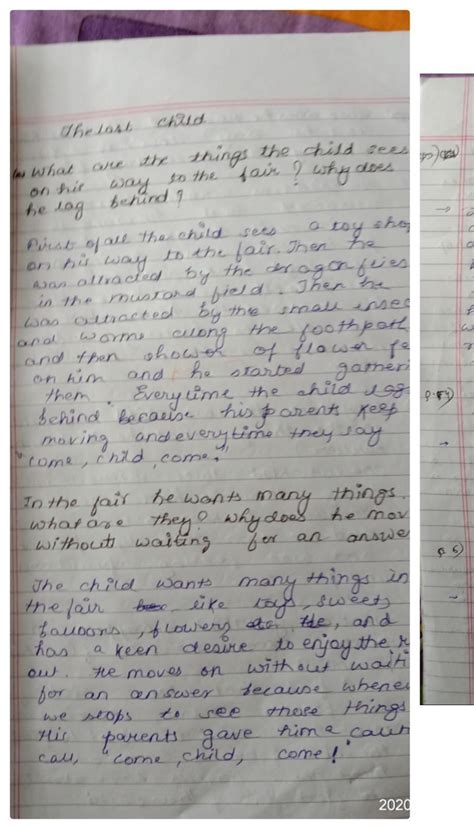 The lost child
What are the things the child sees
on his way to the fair? Why does
he lag behind?
First of all the child sees a toy sho
on his way to the fair. Then he
was attracted by the dragon flies
in the mustard field. Then he
was attracted by the small insec
and worms along the foothpath
and then shower of flower fe
on him and he started gatheri
them. Every time the child lags
behind because his parents keep
moving and everytime they say
"come, child, come."
In the fair he wants many things.
what are they? Why does he mov
without waiting for an answe
The child wants many things in
the fair like toys, sweets,
balloons, flowers and
has a keen desire to enjoy the r
out. He moves on without waiti
for an answer because whene
we stops to see those things
His parents gave him a cauti
call, "come, child, come!"
2020